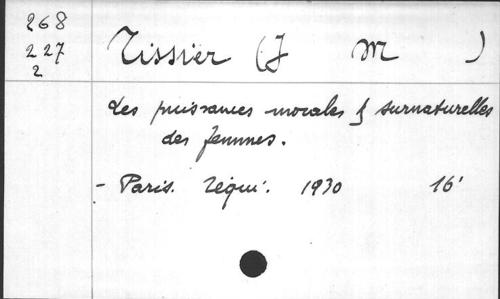 268
227
2
Tissier (J M )
Les puissances morales & surnaturelles
des femmes.
- Paris. Téqui. 1930 16'